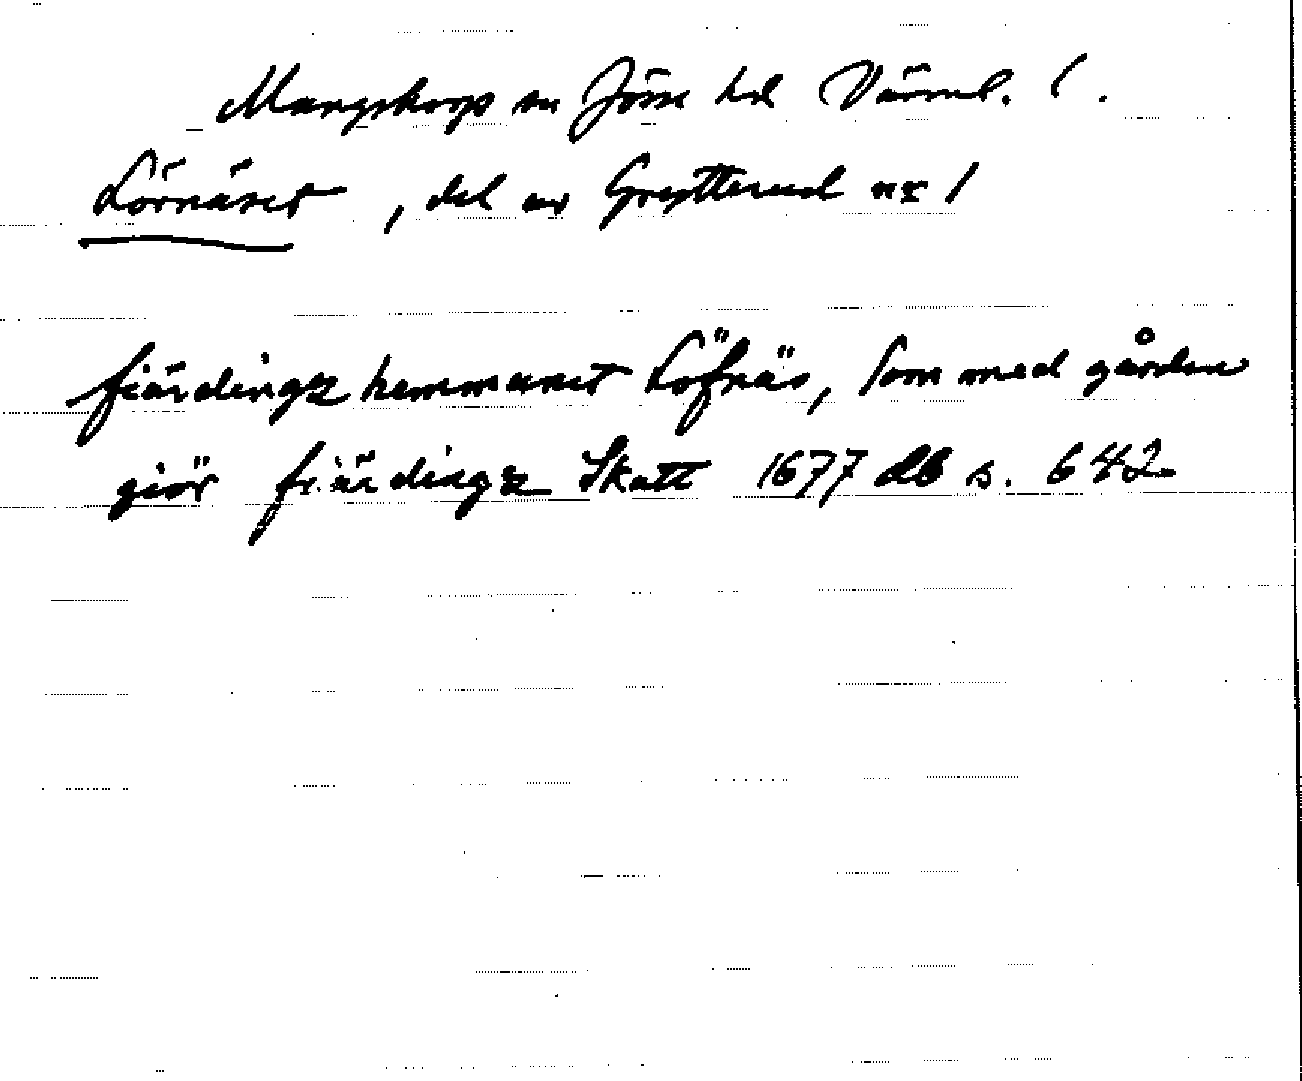 Mangskogs sn Jösse hd Värml. l.
Lövnäset, del av Grytterud nr 1
fiärdingz hemmanet Löfnäs, Som med gården
giör fiärdingz Skatt 1677 db s. 642